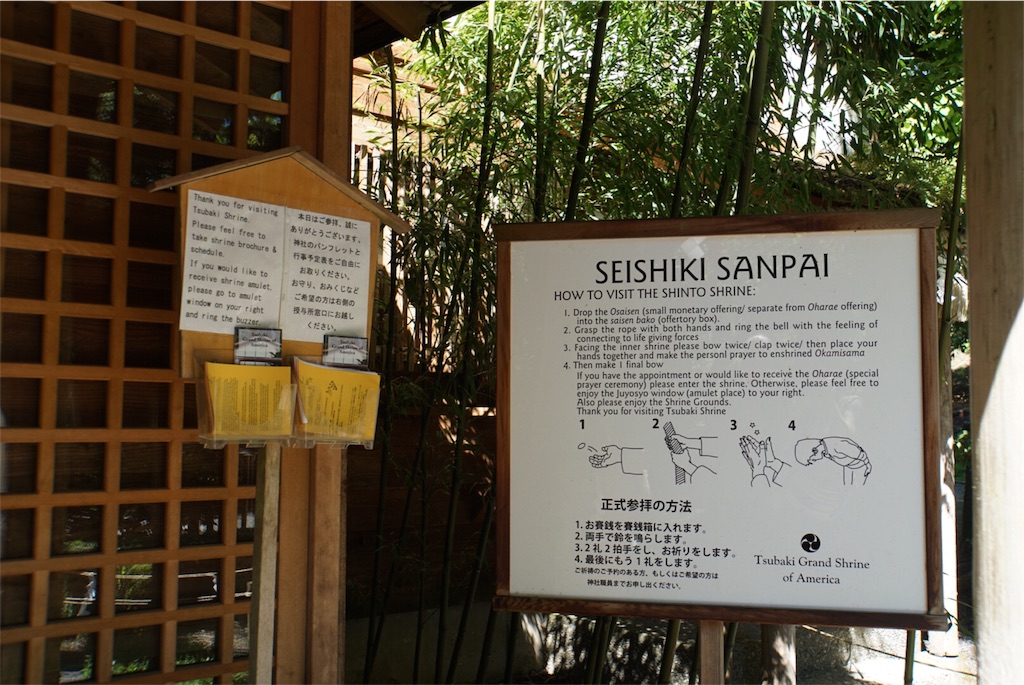 Thank you for visiting
Tsubaki Shrine.
Please feel free to
take shrine brochure &
schedule.
If you would like to
receive shrine amulet,
please go to amulet
window on your right
and ring the buzzer.
本日はご参拝、誠に
ありがとうございます。
神社のパンフレットと
行事予定表をご自由に
お取りください。
お守り、おみくじなど
ご希望の方は右側の
授与所窓口にお越し
ください。
SEISHIKI SANPAI
HOW TO VISIT THE SHINTO SHRINE:
1. Drop the Osaisen (small monetary offering/ separate from Oharae offering)
into the saisen bako (offertory box).
2. Grasp the rope with both hands and ring the bell with the feeling of
connecting to life giving forces
3. Facing the inner shrine please bow twice/ clap twice/ then place your
hands together and make the personl prayer to enshrined Okamisama
4. Then make 1 final bow
If you have the appointment or would like to receive the Oharae (special
prayer ceremony) please enter the shrine. Otherwise, please feel free to
enjoy the Juyosyo window (amulet place) to your right.
Also please enjoy the Shrine Grounds.
Thank you for visiting Tsubaki Shrine
1 2 3 4
正式参拝の方法
1. お賽銭を賽銭箱に入れます。
2. 両手で鈴を鳴らします。
3. 2礼2拍手をし、お祈りをします。
4. 最後にもう1礼をします。
ご祈祷のご予約のある方、もしくはご希望の方は
神社職員までお申し出ください。
Tsubaki Grand Shrine
of America